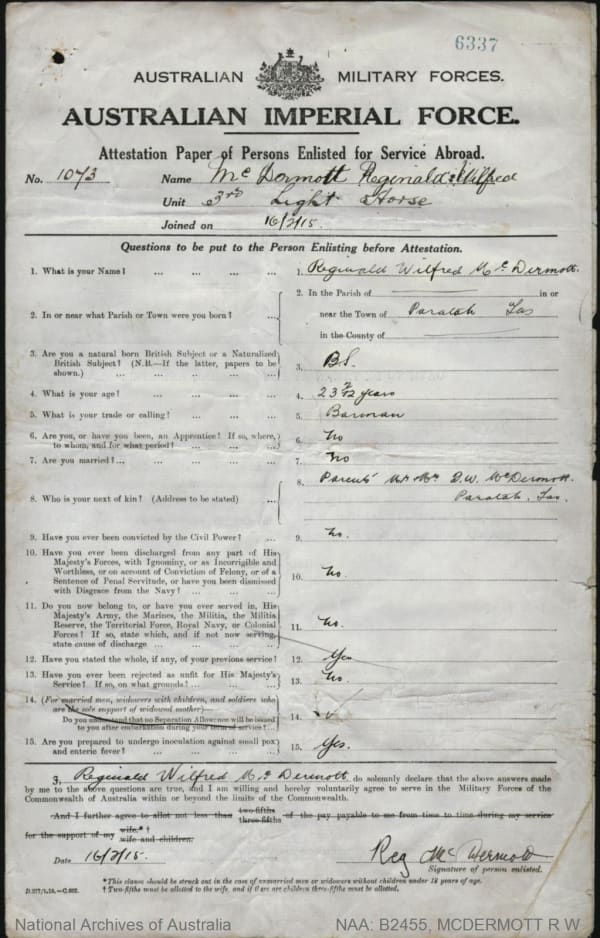 6337
AUSTRALIAN MILITARY FORCES.
AUSTRALIAN IMPERIAL FORCE.
Attestation Paper of Persons Enlisted for Service Abroad.
No. 1073 Name McDermott Reginald Wilfred
Unit 3rd Light Horse
Joined on 16/2/15.
Questions to be put to the Person Enlisting before Attestation.
1. What is your Name? ... ... ... ... 1. Reginald Wilfred McDermott.
2. In or near what Parish or Town were you born? ... 2. In the Parish of in or
near the Town of Paratah Tas
in the County of
3. Are you a natural born British Subject or a Naturalized
British Subject? (N.B.—If the latter, papers to be
shown.) ... ... ... ... 3. B.S.
4. What is your age? ... ... ... ... 4. 23 7/12 years
5. What is your trade or calling? ... ... ... 5. Barman
6. Are you, or have you been, an Apprentice? If so, where,
to whom, and for what period? ... ... ... 6. No
7. Are you married? ... ... ... ... 7. No
8. Who is your next of kin? (Address to be stated) ... 8. Parents Mr Mrs D.W. McDermott.
Paratah. Tas.
9. Have you ever been convicted by the Civil Power? ... 9. No.
10. Have you ever been discharged from any part of His
Majesty's Forces, with Ignominy, or as Incorrigible and
Worthless, or on account of Conviction of Felony, or of a
Sentence of Penal Servitude, or have you been dismissed
with Disgrace from the Navy? ... ... ... 10. No.
11. Do you now belong to, or have you ever served in, His
Majesty's Army, the Marines, the Militia, the Militia
Reserve, the Territorial Force, Royal Navy, or Colonial
Forces? If so, state which, and if not now serving,
state cause of discharge ... ... ... 11. No.
12. Have you stated the whole, if any, of your previous service? 12. Yes
13. Have you ever been rejected as unfit for His Majesty's
Service? If so, on what grounds? ... ... ... 13. No.
14. (For married men, widowers with children, and soldiers who
are the sole support of widowed mother)—
Do you understand that no Separation Allowance will be issued
to you after embarkation during your term of service? ... 14. ✓
15. Are you prepared to undergo inoculation against small pox
and enteric fever? ... ... ... ... 15. Yes.
I, Reginald Wilfred McDermott, do solemnly declare that the above answers made
by me to the above questions are true, and I am willing and hereby voluntarily agree to serve in the Military Forces of the
Commonwealth of Australia within or beyond the limits of the Commonwealth.
*And I further agree to allot not less than two-fifths three-fifths of the pay payable to me from time to time during my service
for the support of my wife.*† wife and children.
Date 16/2/15. Reg McDermott
Signature of person enlisted.
*This clause should be struck out in the case of unmarried men or widowers without children under 18 years of age.
† Two-fifths must be allotted to the wife, and if there are children three-fifths must be allotted.
National Archives of Australia NAA: B2455, MCDERMOTT R W